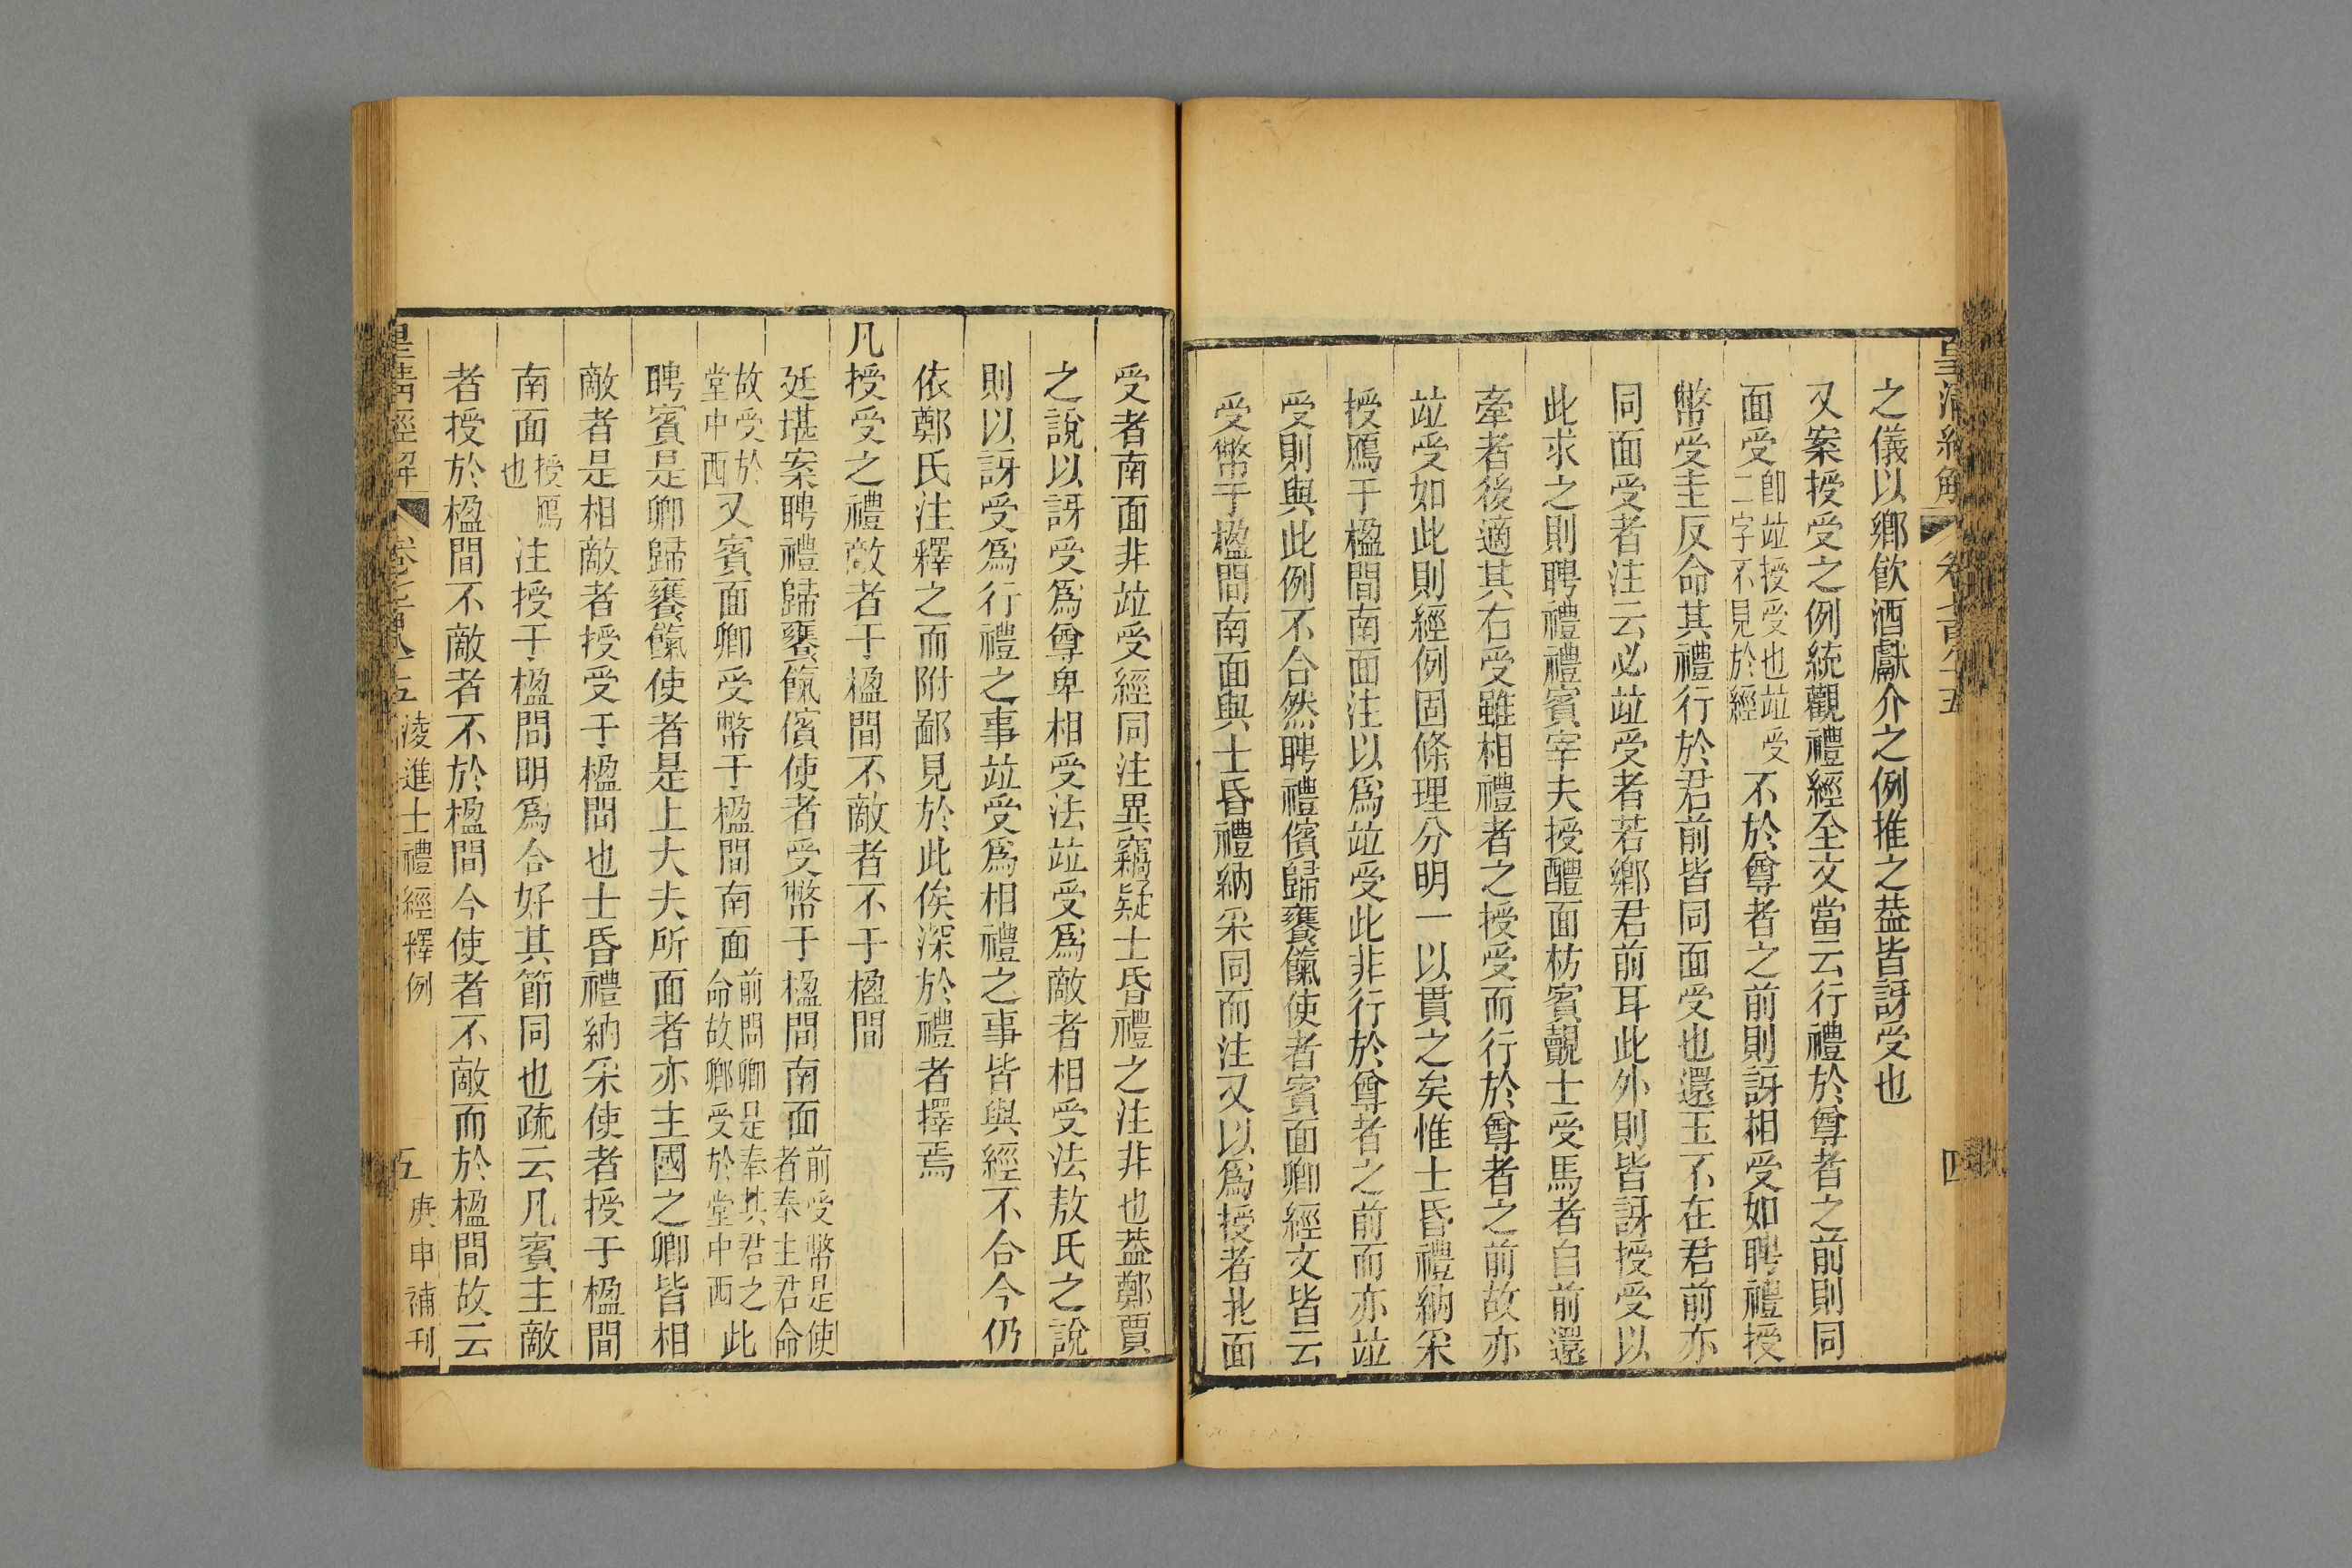 皇清經解 卷七百八十五 四
之儀以鄉飲酒獻介之例推之葢皆訝受也
又案授受之例統觀禮經全文當云行禮於尊者之前則同
面受卽竝授受也竝受二字不見於經不於尊者之前則訝相受如聘禮授
幣受圭反命其禮行於君前皆同面受也還玉不在君前亦
同面受者注云必竝受者若鄉君前耳此外則皆訝授受以
此求之則聘禮禮賓宰夫授醴面枋賓覿士受馬者自前還
牽者後適其右受雖相禮者之授受而行於尊者之前故亦
竝受如此則經例固條理分明一以貫之矣惟士昏禮納采
授鴈于楹間南面注以爲竝受此非行於尊者之前而亦竝
受則與此例不合然聘禮儐歸饔餼使者賓面卿經文皆云
受幣于楹間南面與士昏禮納采同而注又以爲授者北面
受者南面非竝受經同注異竊疑士昏禮之注非也葢鄭賈
之說以訝受爲尊卑相受法竝受爲敵者相受法敖氏之說
則以訝受爲行禮之事竝受爲相禮之事皆與經不合今仍
依鄭氏注釋之而附鄙見於此俟深於禮者擇焉
凡授受之禮敵者于楹間不敵者不于楹間
廷堪案聘禮歸饔餼儐使者受幣于楹間南面前受幣是使者奉主君命
故受於堂中西又賓面卿受幣于楹間南面前問卿是奉其君之命故卿受於堂中西此
聘賓是卿歸饔餼使者是上大夫所面者亦主國之卿皆相
敵者是相敵者授受于楹間也士昏禮納采使者授于楹間
南面授鴈也注授于楹間明爲合好其節同也疏云凡賓主敵
者授於楹間不敵者不於楹間今使者不敵而於楹間故云
皇清經解 卷七百八十五 淩進士禮經釋例 五 庚申補刊